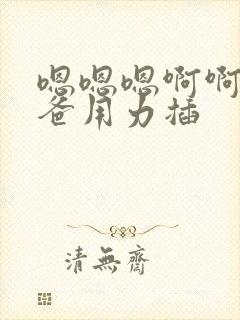 嗯嗯嗯啊啊
爸用力插
清無齋